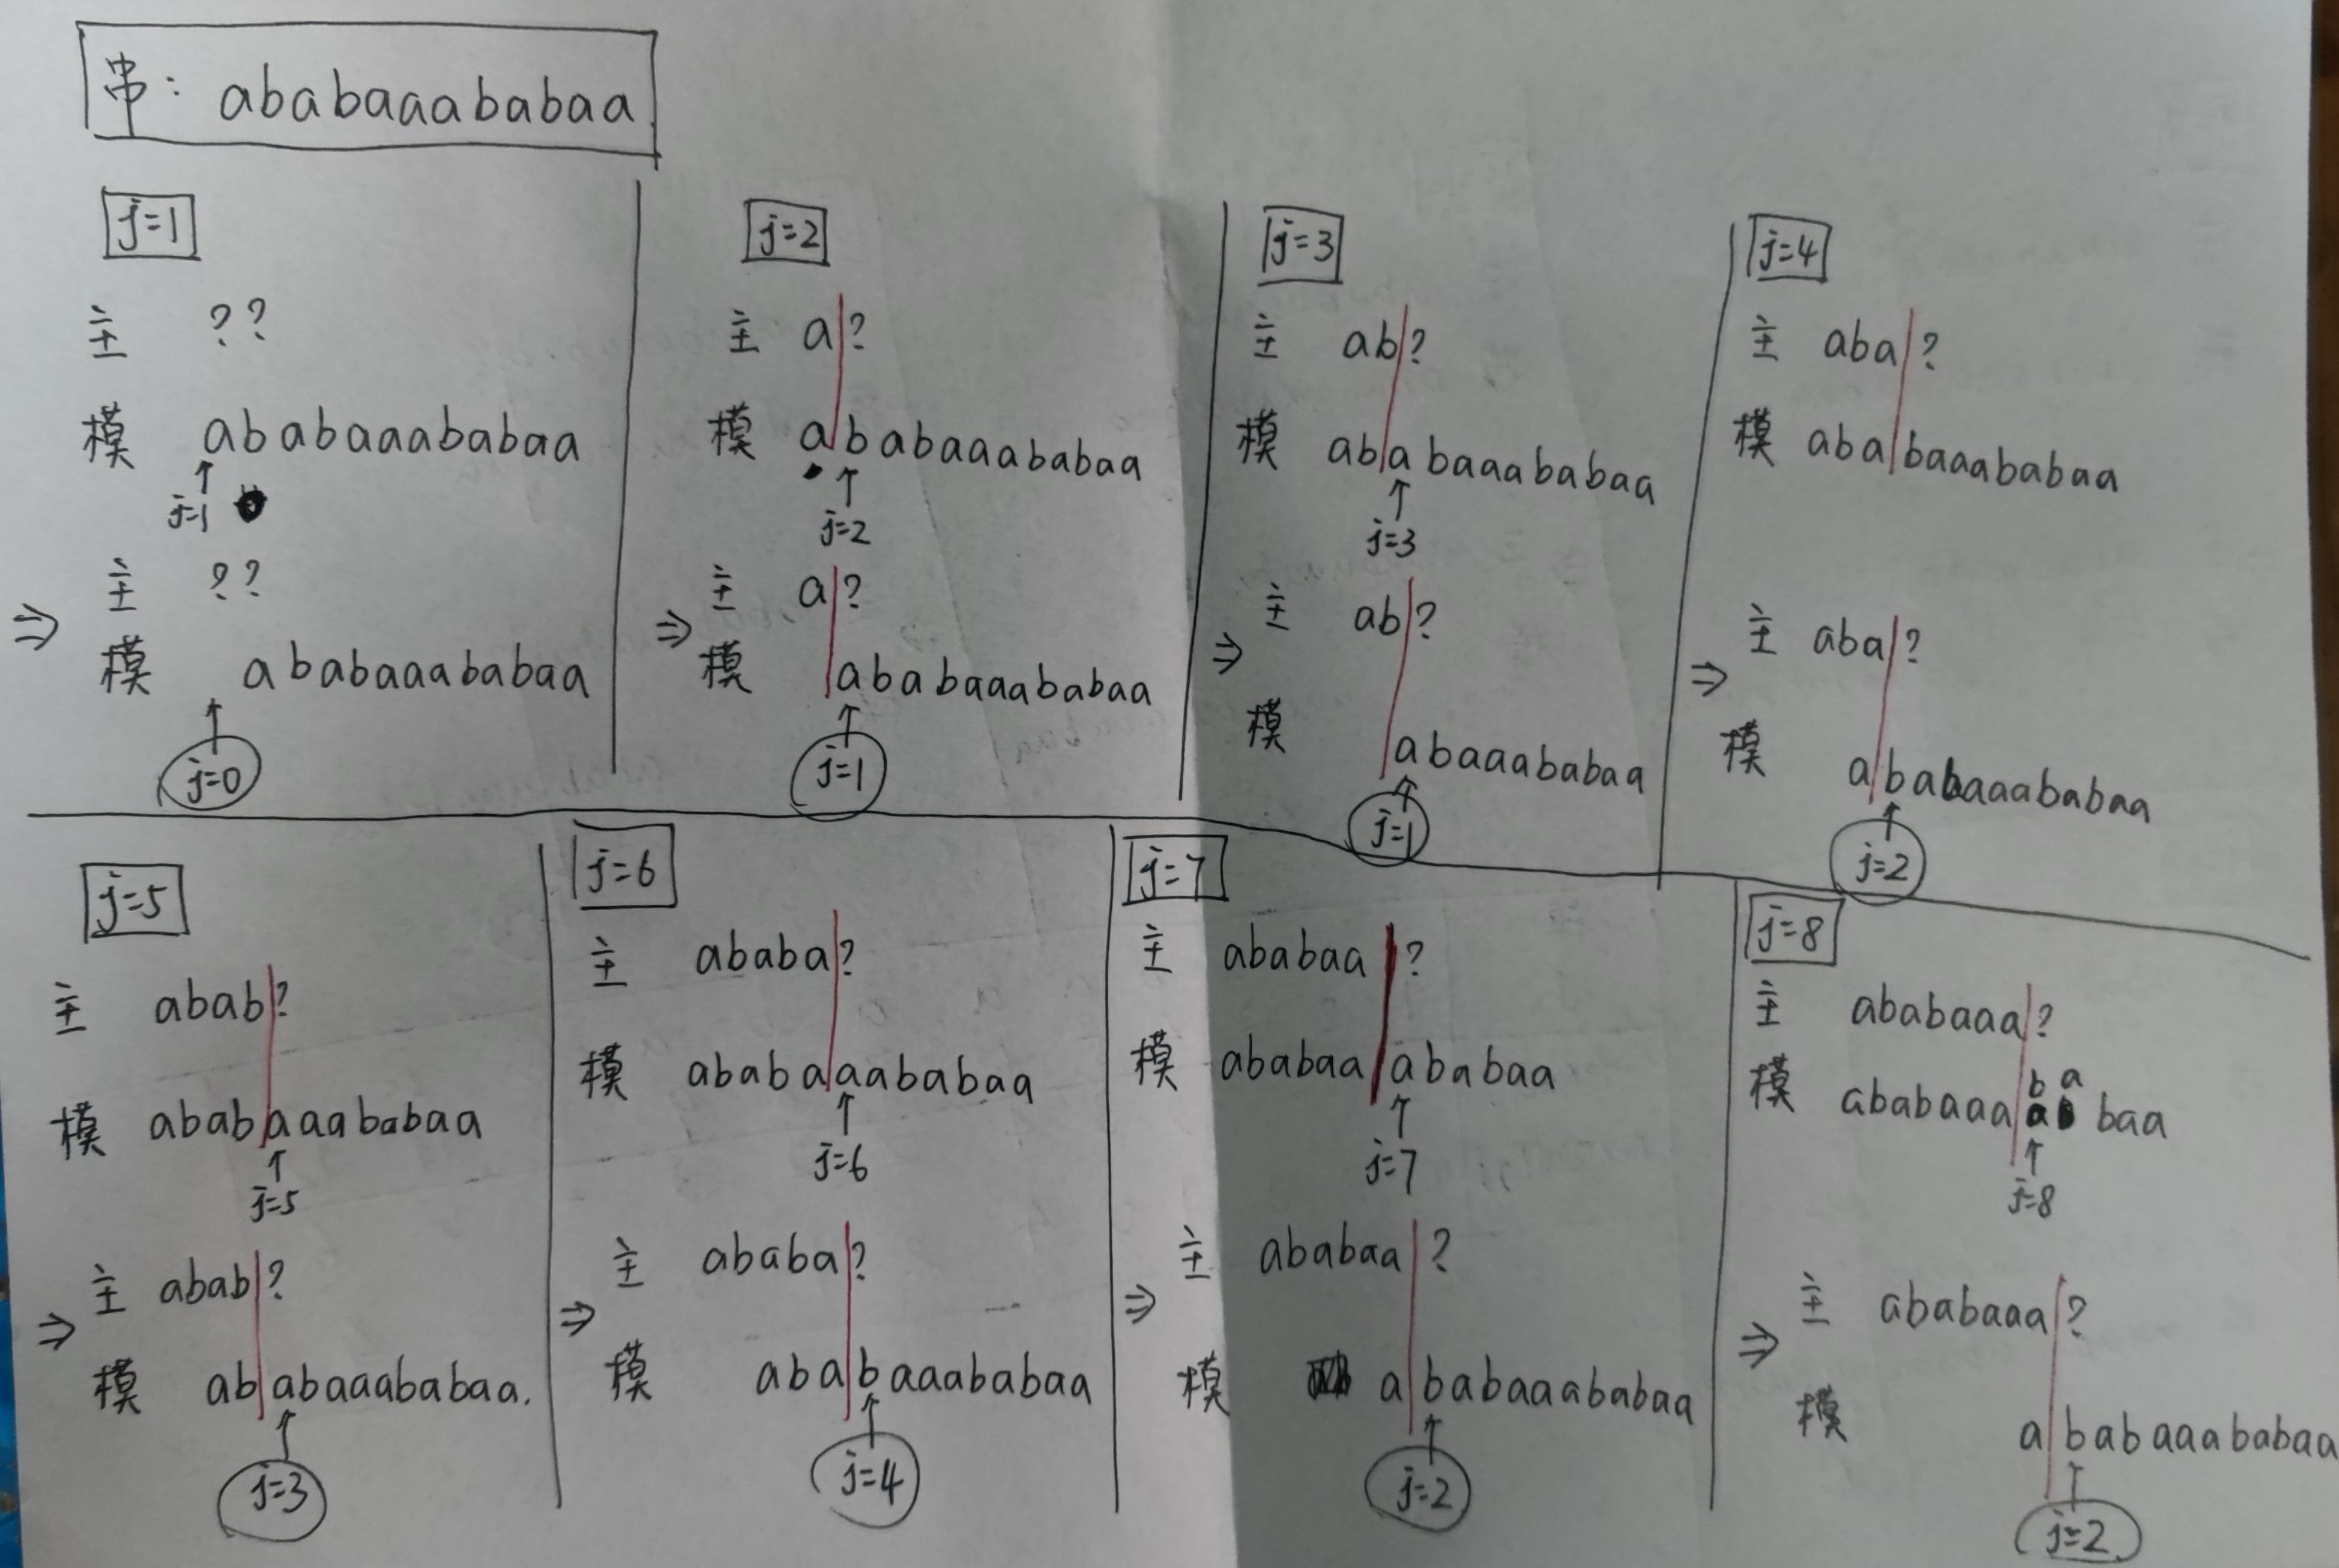 串: ababaaababaa
j=1
主 ??
模 ababaaababaa
j=1
主 ??
⇒
模 ababaaababaa
j=0
j=2
主 a|?
模 a|babaaababaa
j=2
主 a|?
⇒
模 |ababaaababaa
j=1
j=3
主 ab|?
模 ab|abaaababaa
j=3
主 ab|?
⇒
模 |abaaababaa
j=1
j=4
主 aba|?
模 aba|baaababaa
主 aba|?
⇒
模 a|babaaababaa
j=2
j=5
主 abab|?
模 abab|aaababaa
j=5
主 abab|?
⇒
模 ab|abaaababaa.
j=3
j=6
主 ababa|?
模 ababa|aababaa
j=6
主 ababa|?
⇒
模 aba|baaababaa
j=4
j=7
主 ababaa|?
模 ababaa|ababaa
j=7
主 ababaa|?
⇒
模 a|babaaababaa
j=2
j=8
主 ababaaa|?
模 ababaaa|babaa
j=8
主 ababaaa|?
⇒
模 a|babaaababaa
j=2